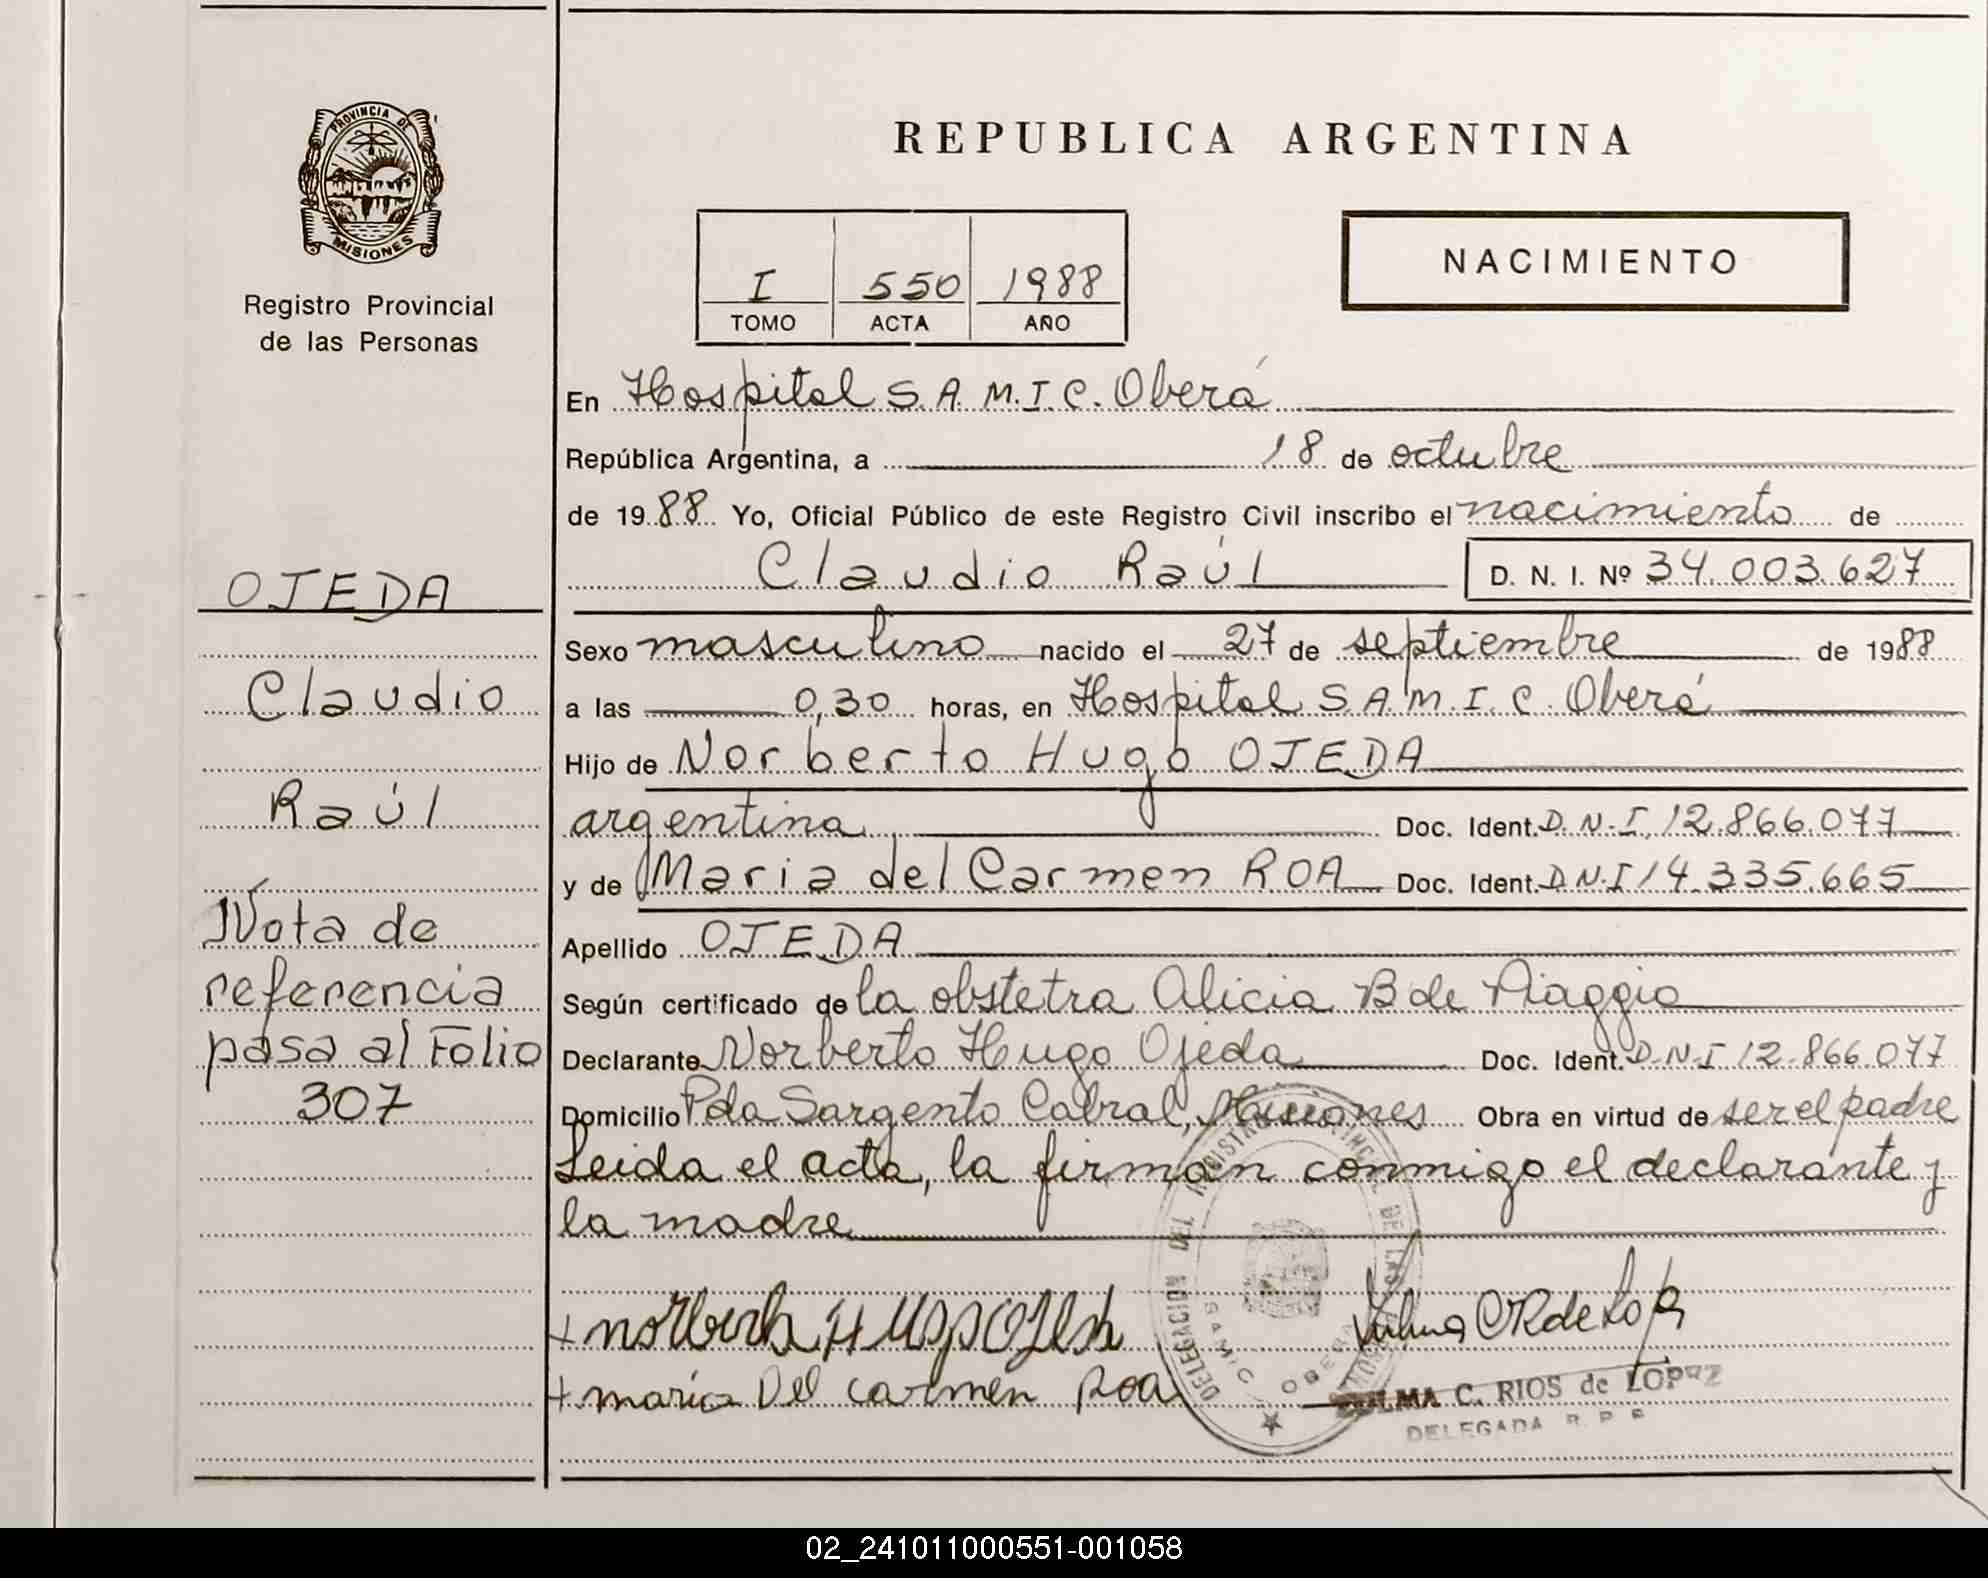 PROVINCIA DE
MISIONES
Registro Provincial
de las Personas
OJEDA
Claudio
Raúl
Nota de
referencia
pasa al Folio
307
REPUBLICA ARGENTINA
I 550 1988
TOMO ACTA AÑO
NACIMIENTO
En Hospital S.A.M.I.C. Oberá
República Argentina, a 18 de octubre
de 1988 Yo, Oficial Público de este Registro Civil inscribo el nacimiento de
Claudio Raúl D. N. I. Nº 34.003.627
Sexo masculino nacido el 27 de septiembre de 1988
a las 0,30 horas, en Hospital S.A.M.I.C. Oberá
Hijo de Norberto Hugo OJEDA
argentina Doc. Ident. D.N.I. 12.866.077
y de Maria del Carmen ROA Doc. Ident. D.N.I 14.335.665
Apellido OJEDA
Según certificado de la obstetra Alicia B de Piaggio
Declarante Norberto Hugo Ojeda Doc. Ident. D.N.I 12.866.077
Domicilio Pda Sargento Cabral, Misiones Obra en virtud de ser el padre
Leida el acta, la firman conmigo el declarante y
la madre
+ norberto Hugo Ojeda
+ maria Del carmen Roa
ZULMA C. RIOS de LOPEZ
DELEGADA R. P. P.
DELEGACION DEL REGISTRO PROVINCIAL DE LAS PERSONAS
SAMIC OBERA
02_241011000551-001058